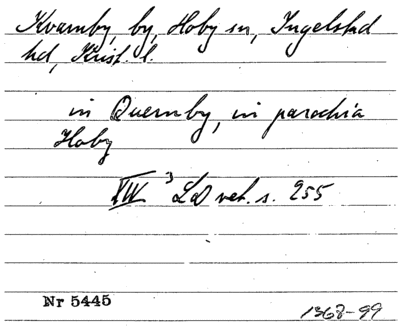 Kvarnby, by, Hoby sn, Ingelstad
hd, Krist. l.
in Quernby, in parochia
Hoby
XIV 3 LD vet. s. 255
Nr 5445
1368-99